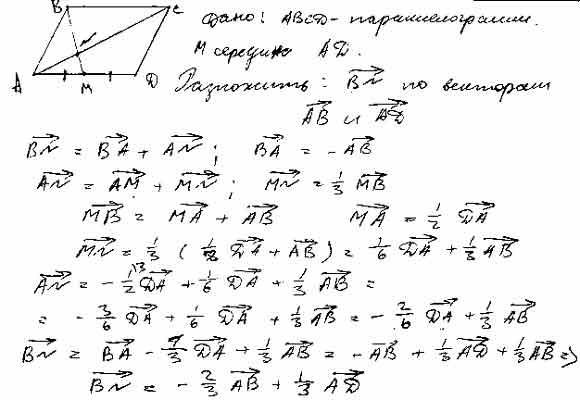 B C
N
A M D
Дано: ABCD - параллелограмм.
M середина AD.
Разложить: BN по векторам
AB и AD
BN = BA + AN; BA = -AB
AN = AM + MN; MN = 1/3 MB
MB = MA + AB MA = 1/2 DA
MN = 1/3 (1/2 DA + AB) = 1/6 DA + 1/3 AB
AN = -1/2 DA + 1/6 DA + 1/3 AB =
= -3/6 DA + 1/6 DA + 1/3 AB = -2/6 DA + 1/3 AB
BN = BA - 1/3 DA + 1/3 AB = -AB + 1/3 AD + 1/3 AB =>
BN = -2/3 AB + 1/3 AD